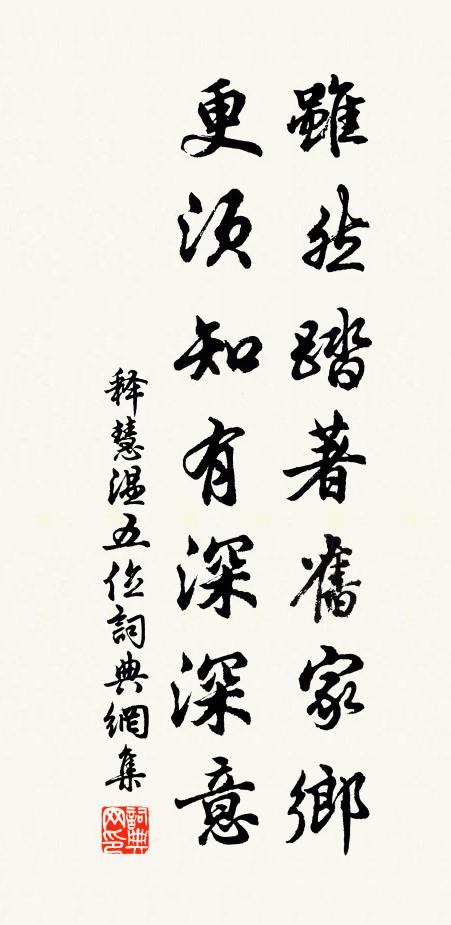 雖然踏著舊家鄉
更須知有深深意
释慧温五位詞典網集
詞典网印